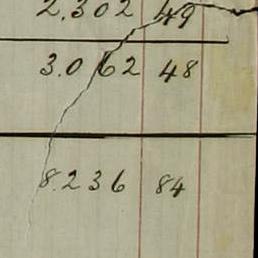 2.302 49
3.062 48
8.236 84